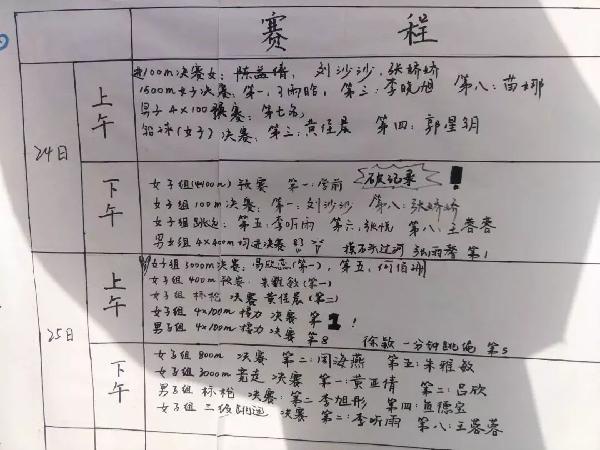 赛程
24日
上午
进100m决赛女：陈益倩，刘沙沙，张娇娇
1500m女子决赛：第一：丁雨晗，第三：李晓旭 第八：苗娜
男子4×100预赛：第七名，
铅球(女子)决赛：第三：黄佳晨 第四：郭星玥
下午
女子组(4×100m)预赛 第一：学前 破记录！
女子组100m决赛：第一：刘沙沙 第八：张娇娇
女子组跳远：第五：李听雨 第六：张悦 第八：王蓉蓉
男女组4×400m均进决赛 摸石头过河 张雨馨 第1
25日
上午
女子组3000m决赛：易欣蕊(第一)，第五：何佰珊
女子组400m预赛：朱雅敏(第一)
女子组标枪决赛黄佳晨(第二)
女子组4×100m接力决赛第1！
男子组4×100m接力决赛第8 徐敏一分钟跳绳第5
下午
女子组800m决赛第二：周海燕 第五：朱雅敏
女子组3000m竞走决赛第一：黄亚倩 第二：吕欣
男子组标枪决赛：第二李旭彤 第四：鱼德宝
女子组三级跳远决赛第二：李听雨 第八：王蓉蓉